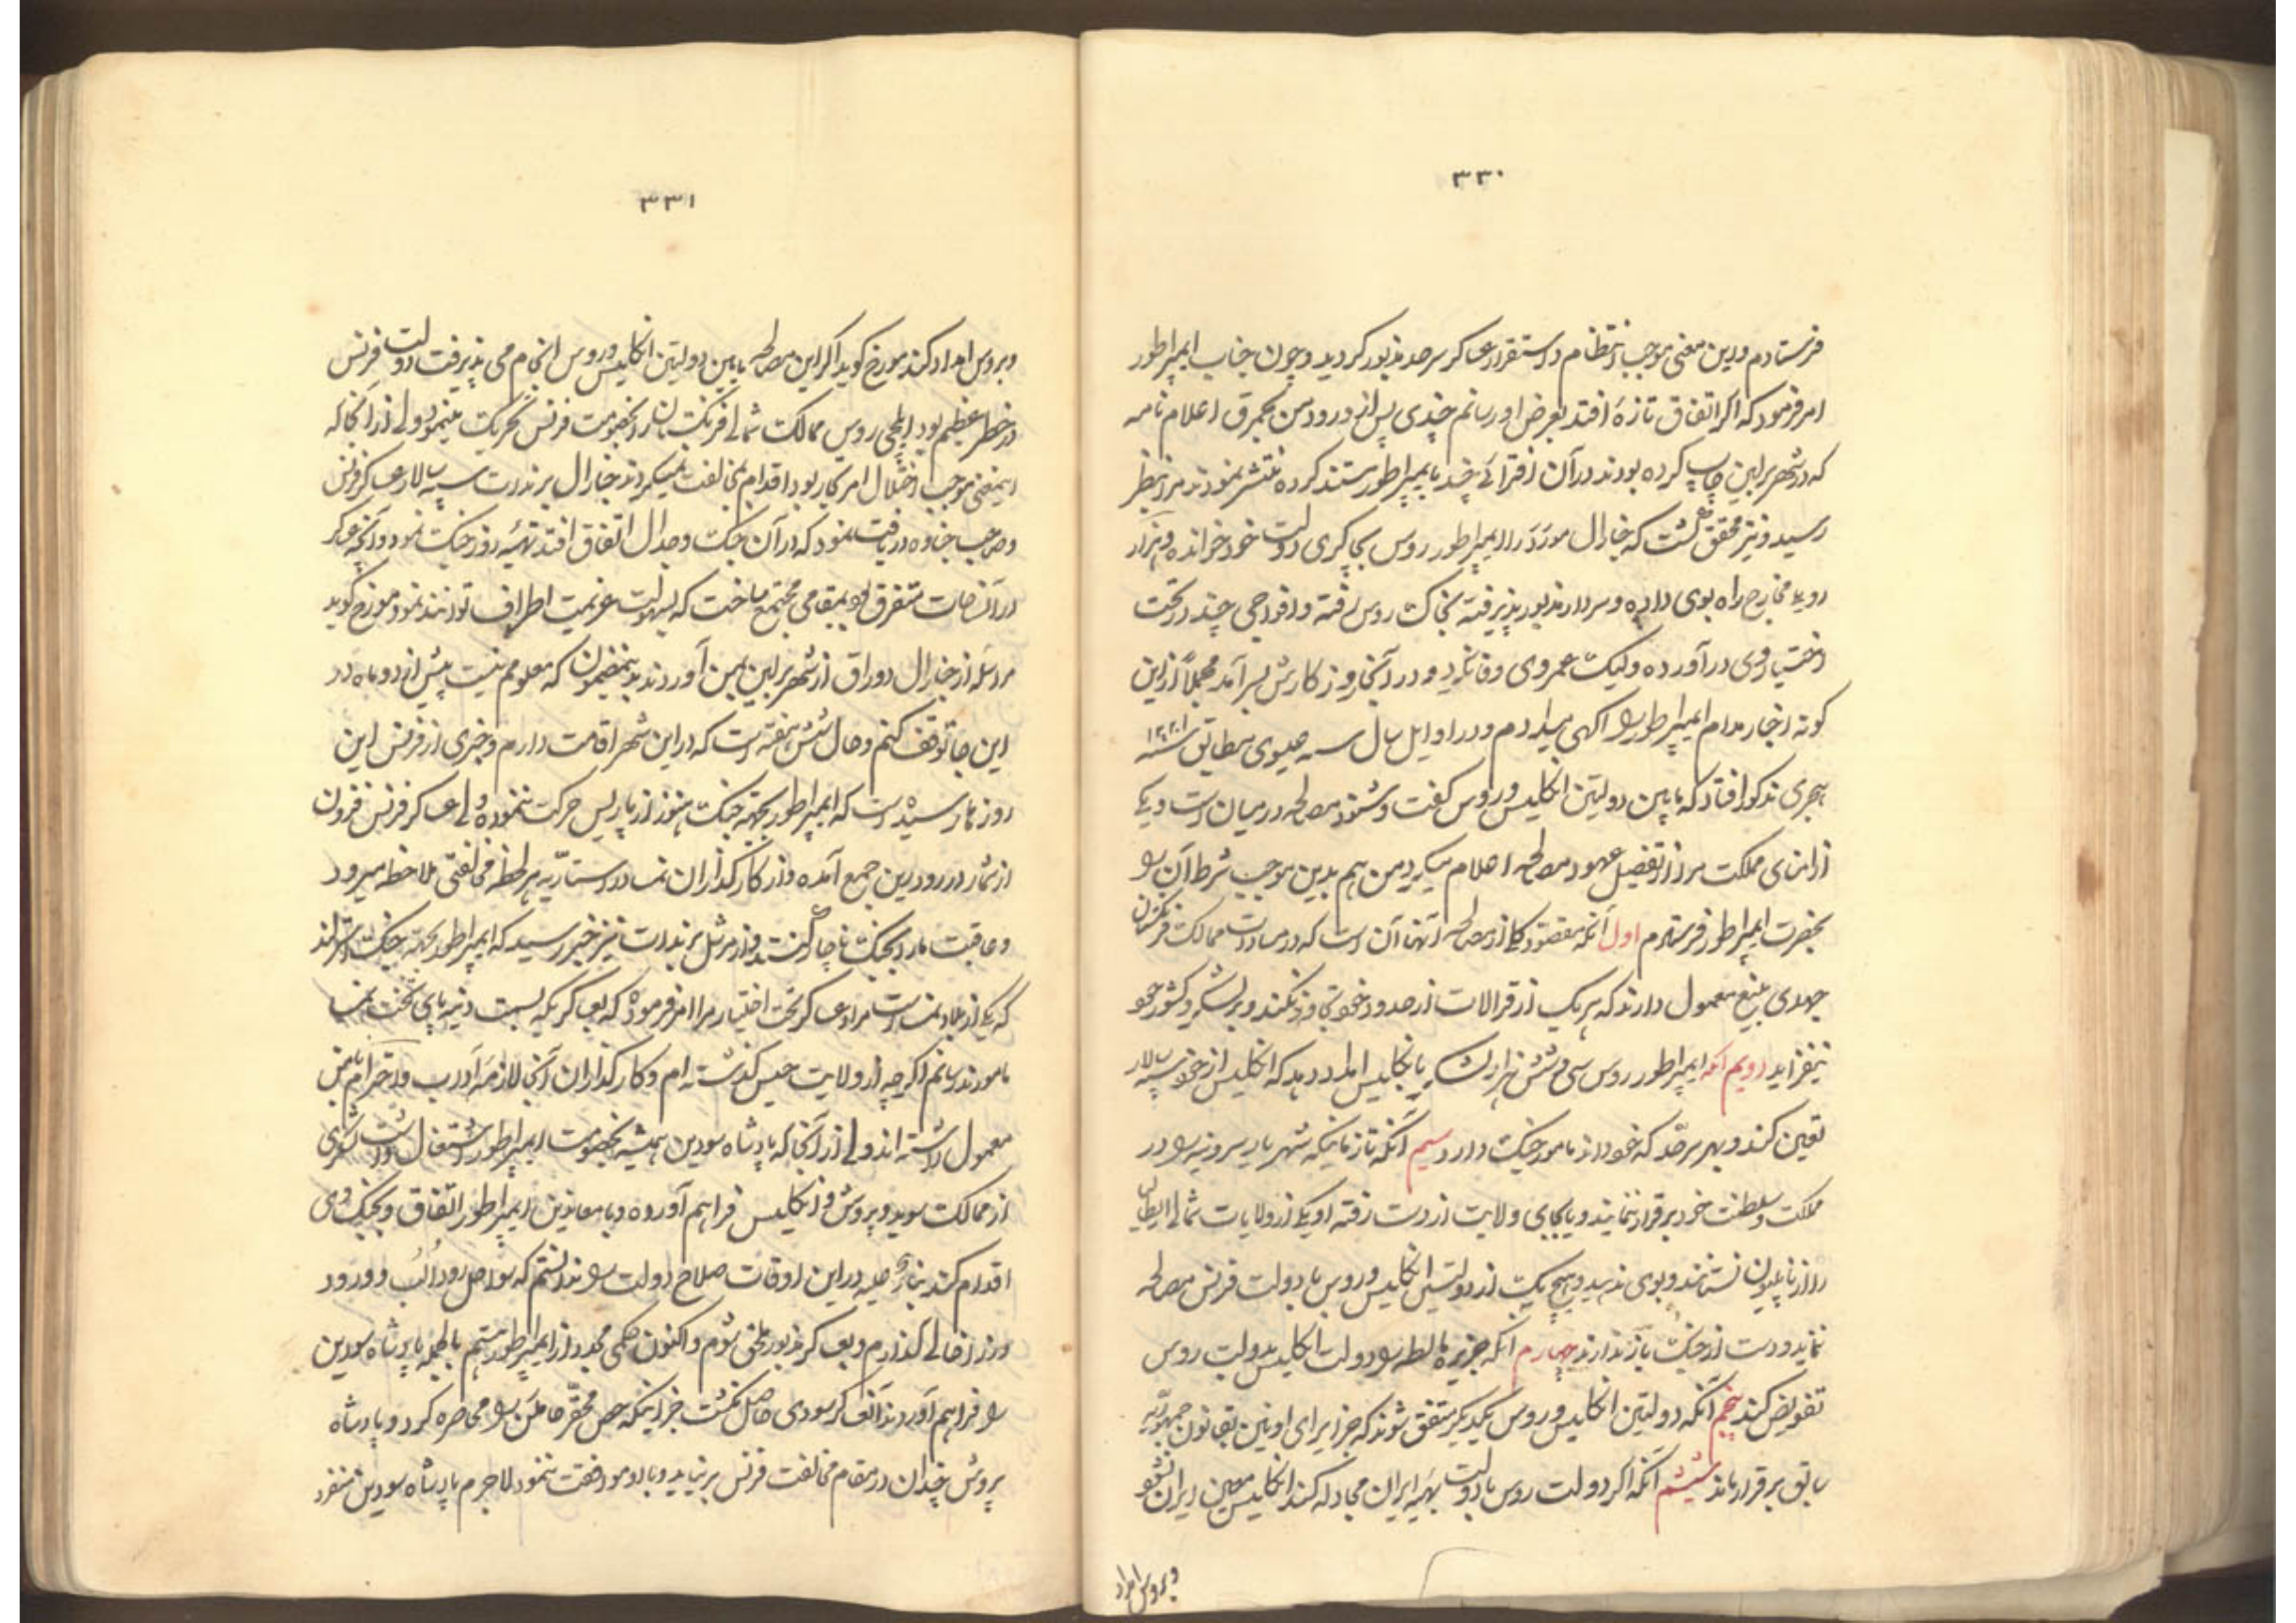 ۳۳۰
فرستادم و این معنی موجب انتظام و استقرار عساکر سرحد مذبور کردید و چون جناب ایمپراطور
امر فرمود که اکر اتفاق تازهٔ افتد بعرض او رسانم چندی پس از ورود من بهمبرق اعلام نامه
که در شهر برلین چاپ کرده بودند در آن افترائی چند بایمپراطور مستند کرده منتشر نمودند مرا بنظر
رسید و نیز محقق کشت که جنارال مورَو را ایمپراطور روس بچاکری دولت خود خوانده و هزار
روپیه مخارج راه بوی داده و سردار مذبور پذیرفته بخاک روس رفته و افواجی چند در تحت
اختیار وی در آورده ولیکن عمر وی وفا نکرد و در آنجا روز کارش بسر آمد مجملاً از این
کونه اخبار مدام ایمپراطور را آکهی میدادم و در اوایل سال سنه عیسوی مطابق سنه ۱۲۲۱
هجری مذکور افتاد که مابین دولتین انکلیس و روس کفت و شنود مصالحه در میان است و یکی
از امنای مملکت مرا از تفصیل عهود مصالحه اعلام میکرد من هم بدین موجب شرط آن را
بحضرت ایمپراطور فرستادم اول آنکه مقصود کلی از مصالحه آنها آن است که در مساوات ممالک فرنکستان
جهدی بلیغ معمول دارند که هر یک از قرالات از حدود خود تجاوز نکنند و بر لشکر و کشور خود
نیفزاید دویم آنکه ایمپراطور روس سی و شش هزار لشکر بانکلیس امداد دهد که انکلیس از خود سپهسالار
تعین کند و بهر سرحد که خواهد مامور جنک دارد سیم آنکه تا زمانیکه شهریار سردنیه را در
مملکت و سلطنت خود برقرار ننمایند و یا بجای ولایت از دست رفته او یکی از ولایات شمالی ایطالیا
را از ناپلیون نستانند و بوی ندهند هیچ یک از دولتین انکلیس و روس با دولت فرنس مصالحه
ننماید و دست از جنک باز ندارند چهارم آنکه جزیره مالطه را دولت انکلیس بدولت روس
تفویض کند پنجم آنکه دولتین انکلیس و روس بیکدیکر متفق شوند که جزایر ای اونین بقانون جمهوریه
سابق برقرار ماند ششم آنکه اکر دولت روس با دولت بهیه ایران مجادله کند انکلیس معین ایران نشود
و بروس امداد
۳۳۱
و بروس امداد کند مورخ کوید اکر این مصالحه مابین دولتین انکلیس و روس انجام می پذیرفت دولت فرنس
در خطر عظیم بود ایلچی روس ممالک شمالی فرنکستان را بخصومت فرنس تحریک مینمود ولی از آنجا که
اینمعنی موجب اختلال امر تجار بود اقدام بمخالفت نمیکردند جنارال برندات سپه سالار عساکر فرنس
و صاحب هناوه دریافت نمود که در آن جنک و جدال اتفاق افتد تهیّه روز جنک نمود و آنچه عساکر
در آنصفحات متفرق بود بمقامی مجتمع ساخت که بسهولت عزیمت اطراف توانند نمود مورخ کوید
مراسله از جنارال دوراق از شهر برلین بمن آوردند بدینمضمون که معلوم نیست پیش از دو ماه در
این جا توقف کنم و حال شش هفته است که در این شهر اقامت دارم و خبری از فرنس این
روزها رسیده است که ایمپراطور بجهة جنک هنوز از پاریس حرکت ننموده ولی عساکر فرنس فزون
از شمار در رود رین جمع آمده و از کارکذاران نمسا و اوستاریّه هر لحظه مخالفتی ملاحظه میرود
و عاقبت ما را بجنک ناچار کنند و از مرشل برندات نیز خبر رسید که ایمپراطور بجهة جنک
که یکی از بلاد نمسا است مرا و عساکر تحت اختیار مرا امر فرموده که بعساکریکه بسمت وینه پای تخت نمسا
مامورند رسانم اکرچه از ولایت حیس کذشته ام و کارکذاران آنجا لازمه آداب و احترام با من
معمول داشته اند ولی از آنجا که پادشاه سودین همیشه بخصومت ایمپراطور اشتغال داشت لشکری
از ممالک سوید و پروش و انکلیس فراهم آورده و با معاندین ایمپراطور اتفاق و بجنک وی
اقدام کند بناء علیه در این اوقات صلاح دولت را ندانستم که سواحل رود الب و ورود
وزر را خالی کذارم و بعساکر مذبور ملحق شوم و اکنون حکمی مجدد از ایمپراطور رسیدم بالجمله پادشاه سودین
را فراهم آوردن آنعساکر سودی حاصل نکشت جز اینکه حصن محقّر هاملن را محاصره کرد و پادشاه
پروش چندان در مقام مخالفت فرنس برنیاید و با او موافقت ننمود لاجرم پادشاه سودین منفرد